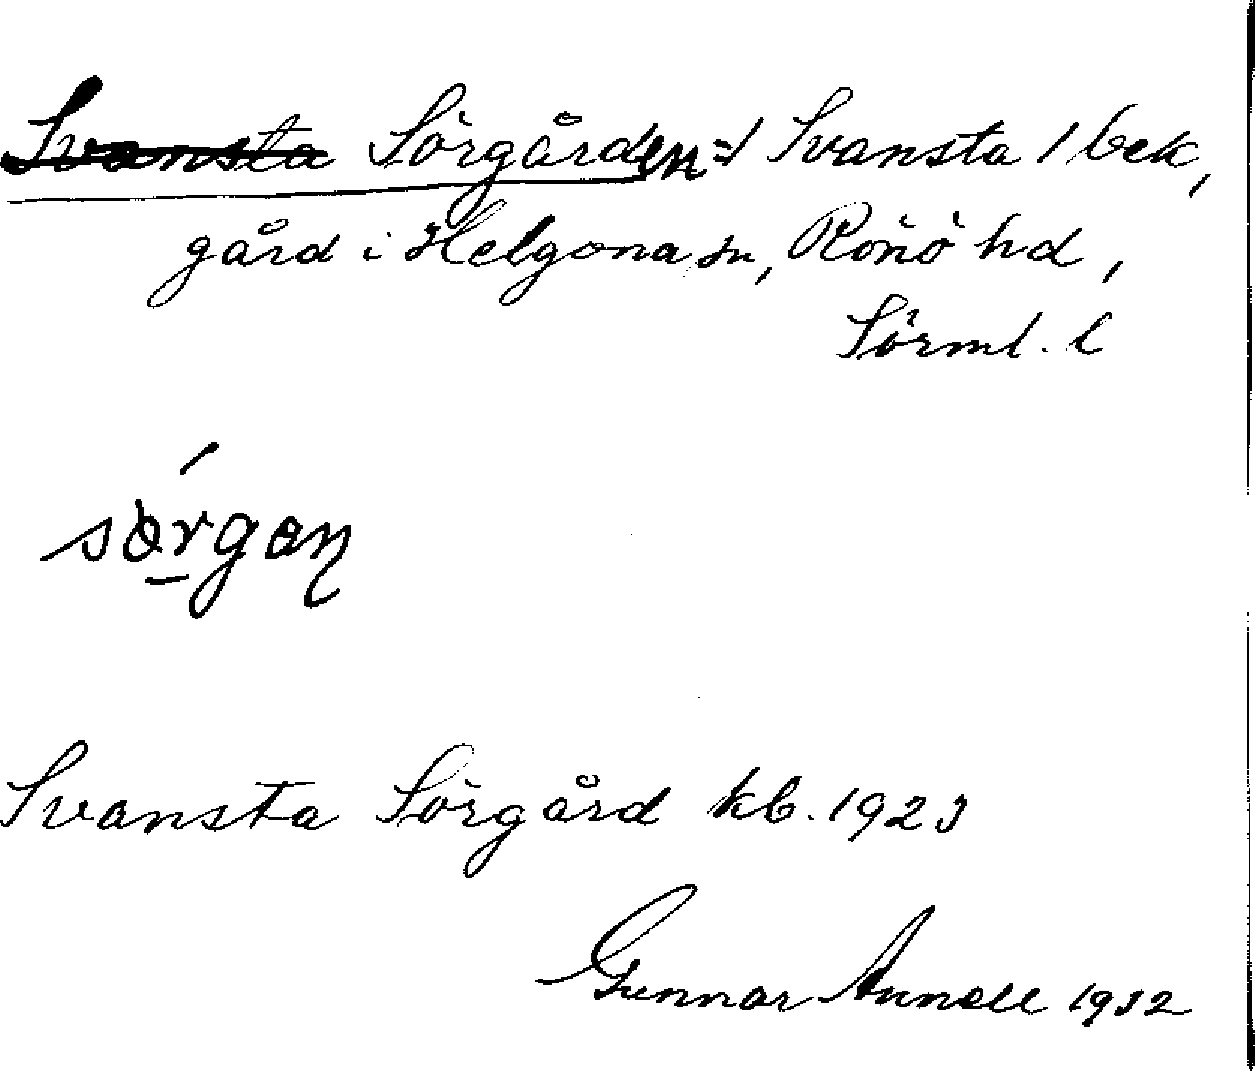 Svansta Sörgården = Svansta 1 bek,
gård i Helgona sn, Rönö hd,
Sörml. l
sörgon
Svansta Sörgård kb. 1923
Gunnar Annell 1932